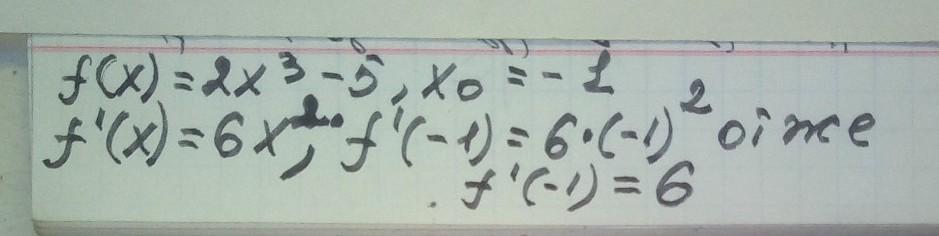 f(x) = 2x³ - 5, x₀ = -1
f'(x) = 6x², f'(-1) = 6·(-1)² отже
f'(-1) = 6